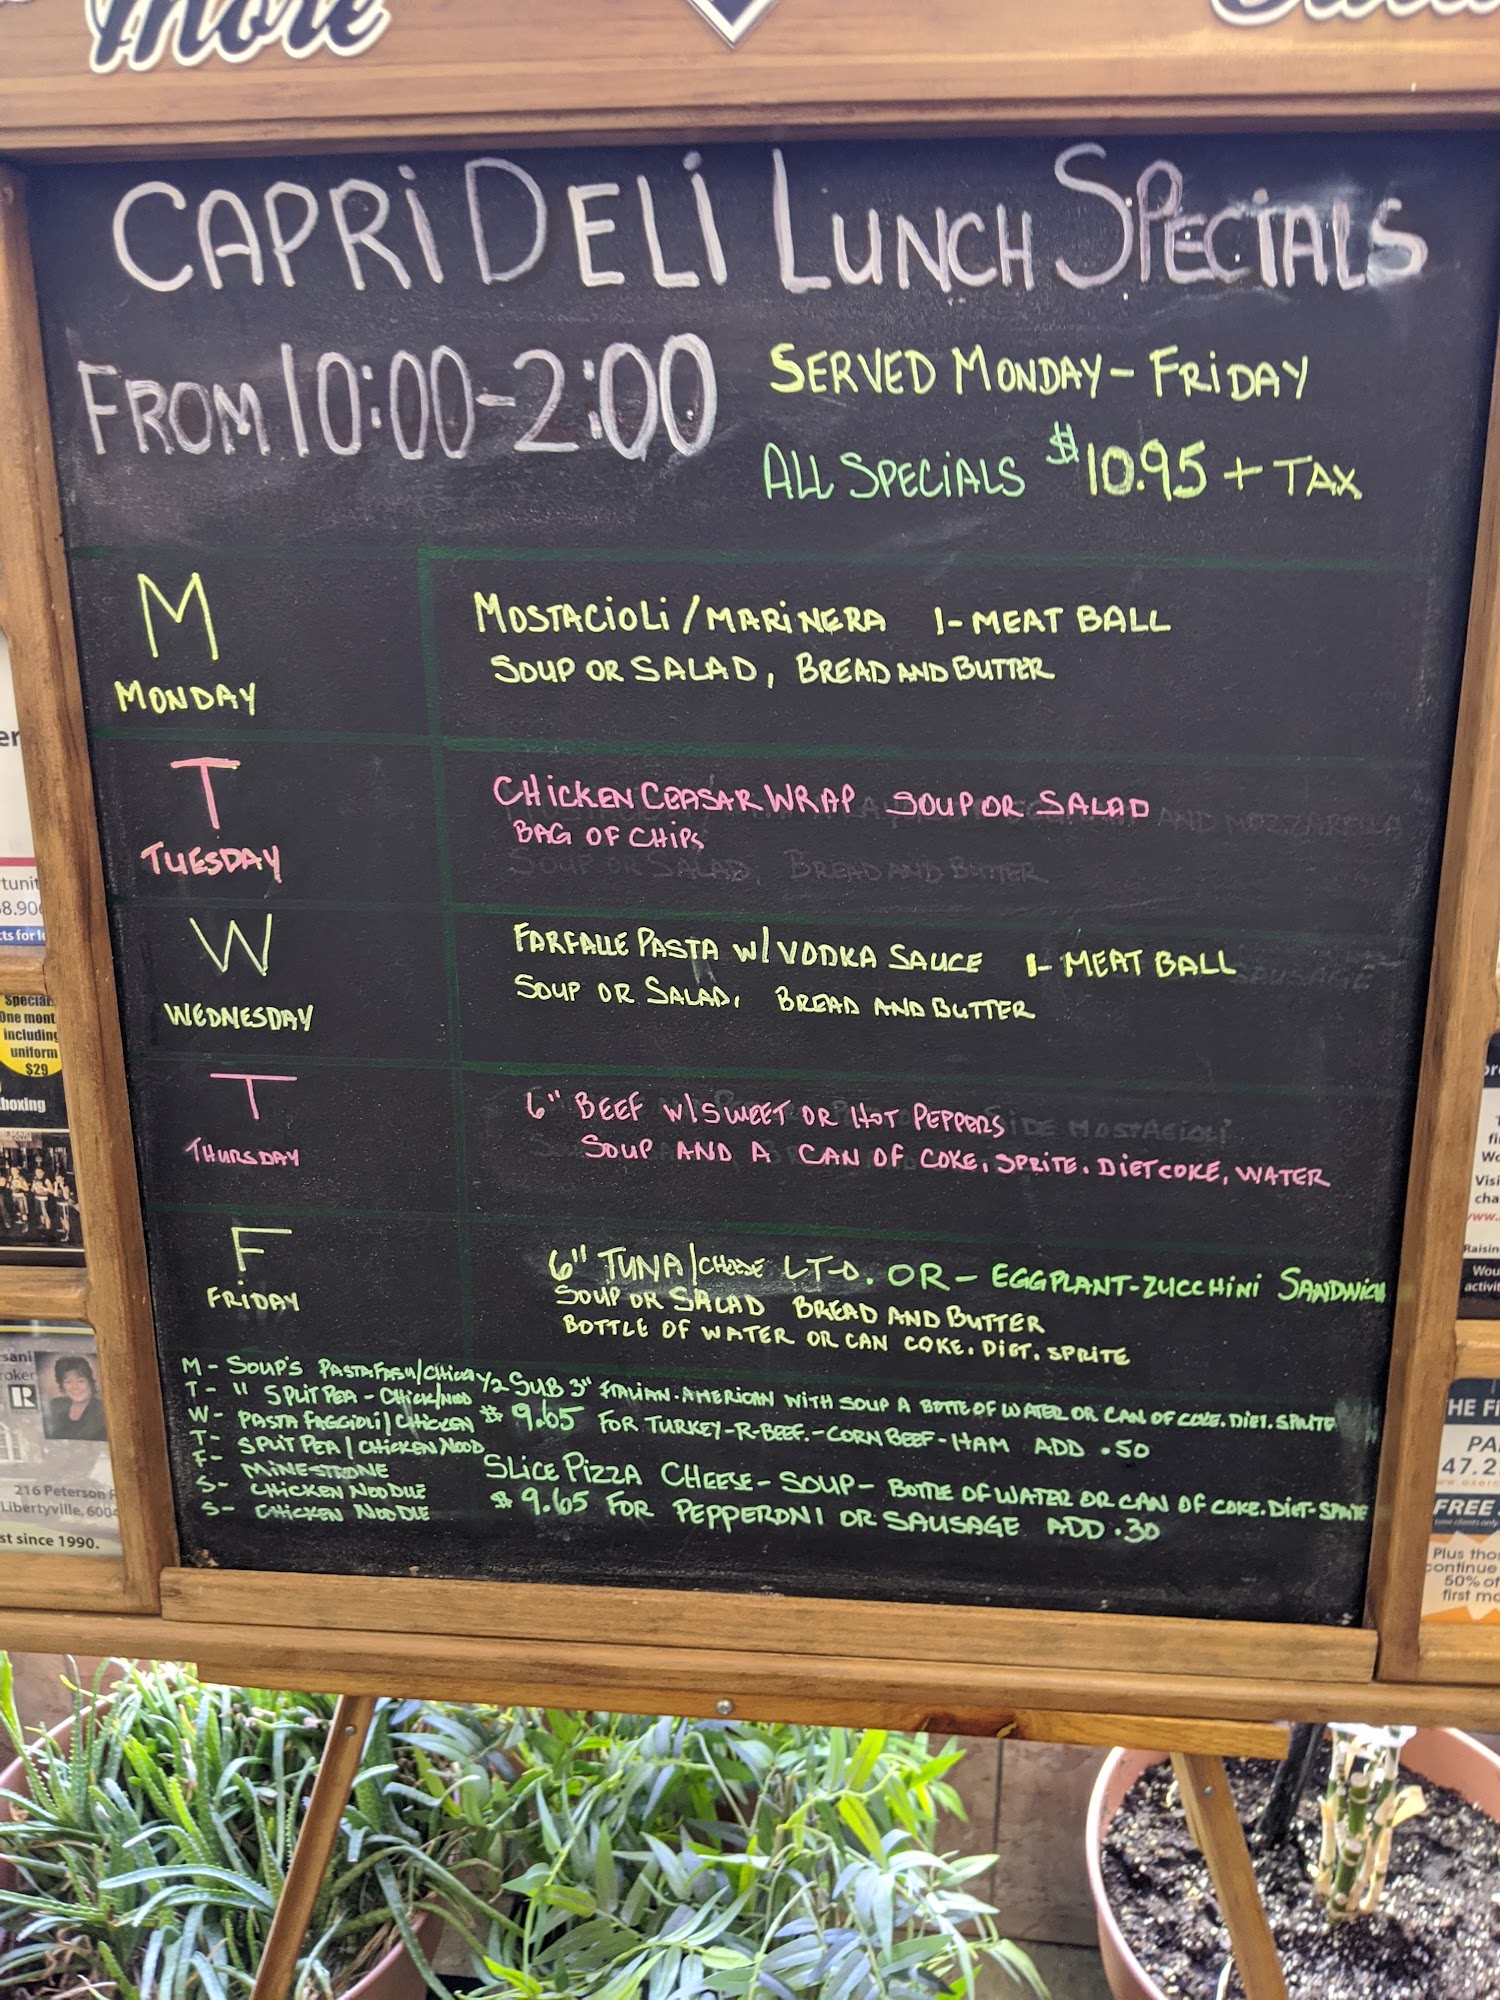 More
CAPRI DELI LUNCH SPECIALS
FROM 10:00-2:00
SERVED MONDAY-FRIDAY
ALL SPECIALS $10.95 + TAX
M
MONDAY
MOSTACIOLI/MARINERA 1-MEAT BALL
SOUP OR SALAD, BREAD AND BUTTER
T
TUESDAY
CHICKEN CEASAR WRAP SOUP OR SALAD
BAG OF CHIPS
AND MOZZARELLA
SOUP OR SALAD, BREAD AND BUTTER
W
WEDNESDAY
FARFALLE PASTA W/VODKA SAUCE 1-MEAT BALL
SAUSAGE
SOUP OR SALAD, BREAD AND BUTTER
T
THURSDAY
6" BEEF W/SWEET OR HOT PEPPERS
SIDE MOSTACIOLI
SOUP AND A CAN OF COKE, SPRITE. DIET COKE, WATER
F
FRIDAY
6" TUNA/CHEESE LT-O. OR - EGGPLANT-ZUCCHINI SANDWICH
SOUP OR SALAD BREAD AND BUTTER
BOTTLE OF WATER OR CAN COKE. DIET. SPRITE
M - SOUP'S PASTA
T - " SPLIT PEA - CHICK/NOO
W - PASTA FAGGIOLI/CHICKEN
T - SPLIT PEA/CHICKEN NOOD
F - MINESTRONE
S - CHICKEN NOODLE
S - CHICKEN NOODLE
1/2 SUB 3" ITALIAN-AMERICAN WITH SOUP A BOTTE OF WATER OR CAN OF COKE. DIET. SPRITE
$9.65 FOR TURKEY-R-BEEF.-CORN BEEF-HAM ADD .50
SLICE PIZZA CHEESE-SOUP-BOTTLE OF WATER OR CAN OF COKE. DIET-SPRITE
$9.65 FOR PEPPERONI OR SAUSAGE ADD .30
er
Special
One mont
including
uniform
$29
boxing
216 Peterson
Libertyville, 600
st since 1990.
Visi
www.
Raisin
Wou
activit
HE FI
PA
47.2
FREE
Plus tho
continue
50% of
first mo